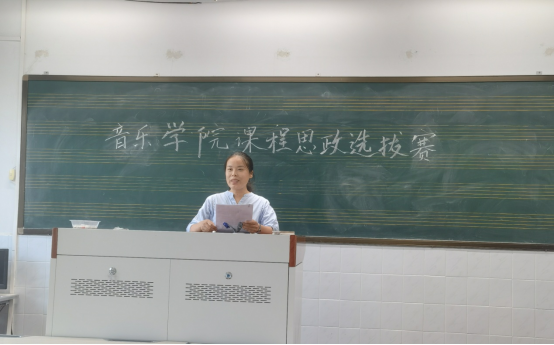 音乐学院课程思政选拔赛